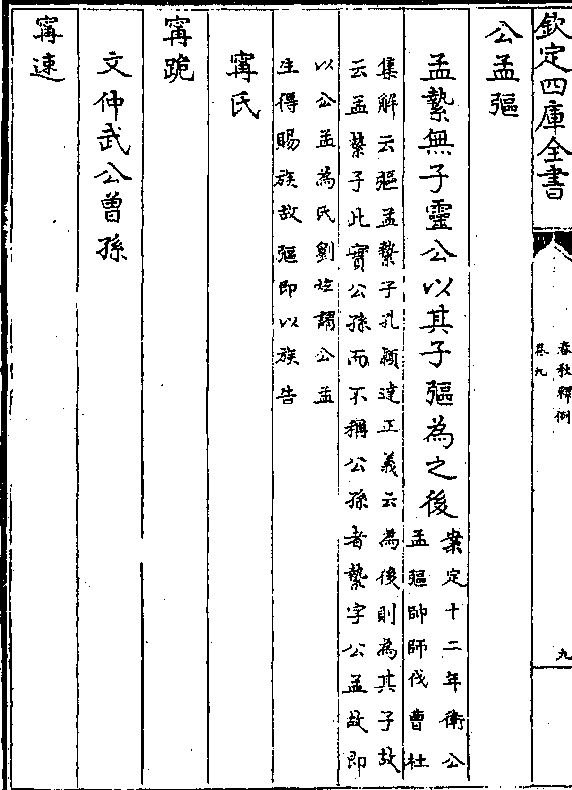 欽定四庫全書
春秋釋例
卷九
九
公孟彄
孟縶無子靈公以其子彄為之後
案定十二年衛公
孟彄帥師伐曹杜
集解云彄孟縶子孔穎達正義云為後則為其子故
云孟縶子此實公孫而不稱公孫者縶字公孟故即
以公孟為氏劉炫謂公孟
生得賜族故彄即以族告
甯氏
甯跪
文仲武公曾孫
甯速